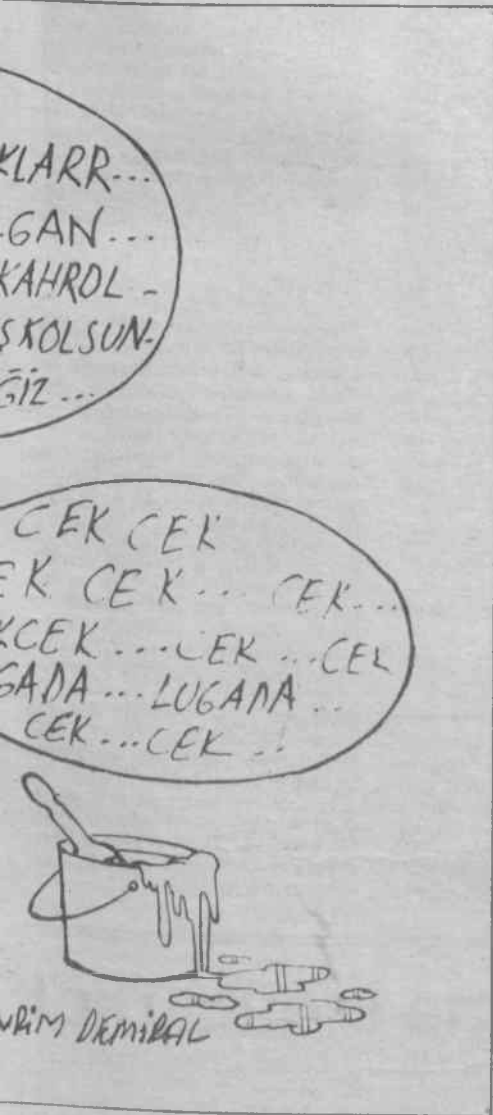 KLARR...
GAN...
KAHROL -
ŞKOLSUN-
ĞİZ...
CEK CEK
EK CEK... CEK...
KCEK...CEK...CEK
GADA...LUGADA..
CEK...CEK..
VRİM DEMİRAL